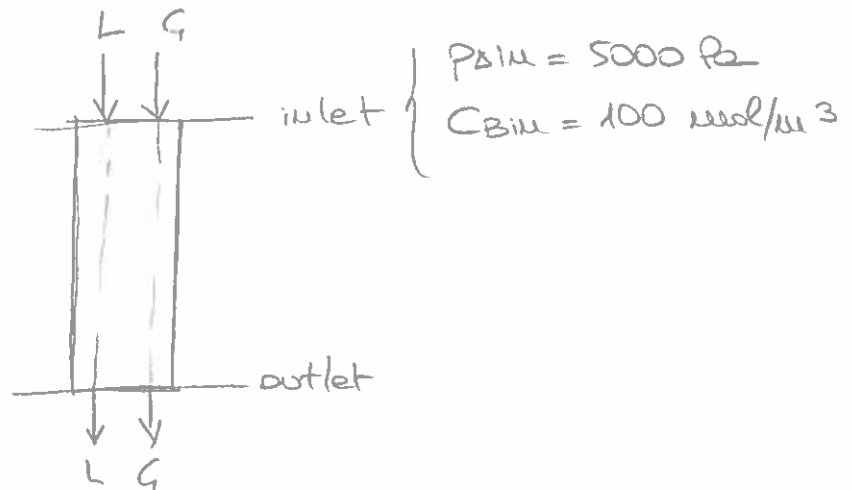 L G
inlet
pAin = 5000 Pa
CBin = 100 mol/m³
outlet
L G